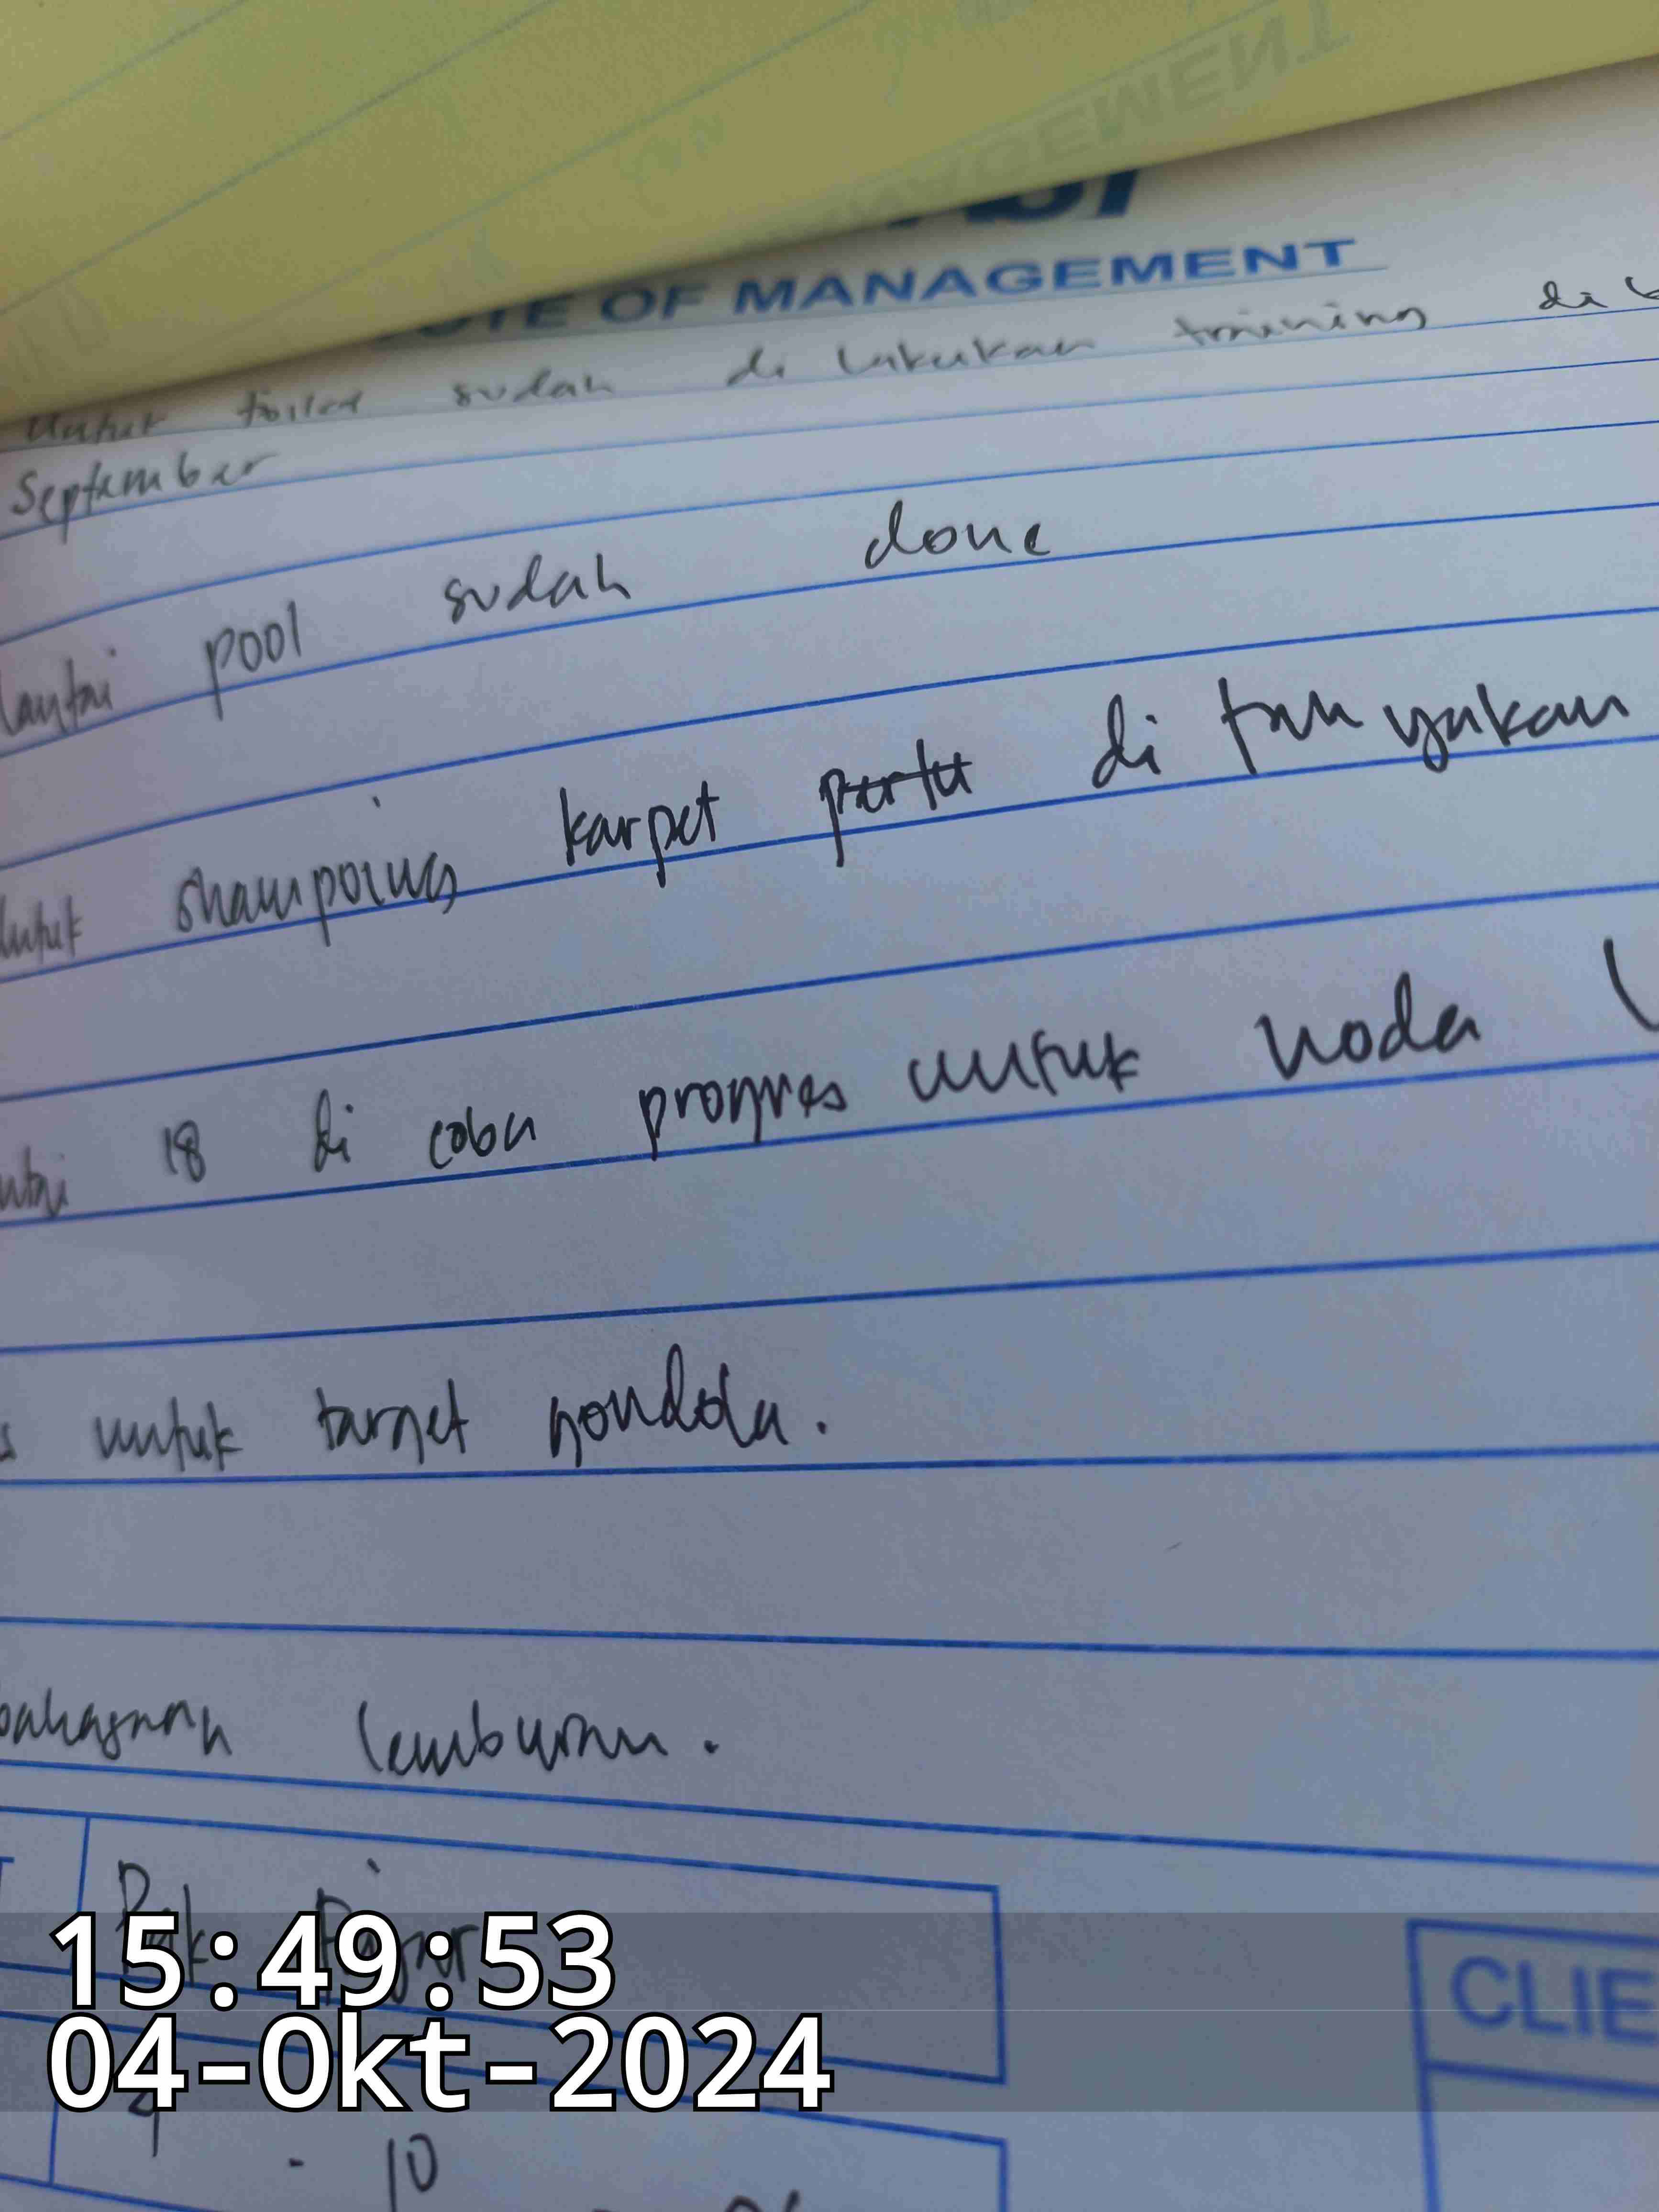 OF MANAGEMENT
Untuk toilet sudah di lakukan training di
September
lantai pool sudah done
Untuk shampoing karpet perlu di tanyakan
18 di coba progres untuk noda
untuk target gondola.
lemburan.
Pak
15:49:53
04-Okt-2024
4 - 10
CLIE